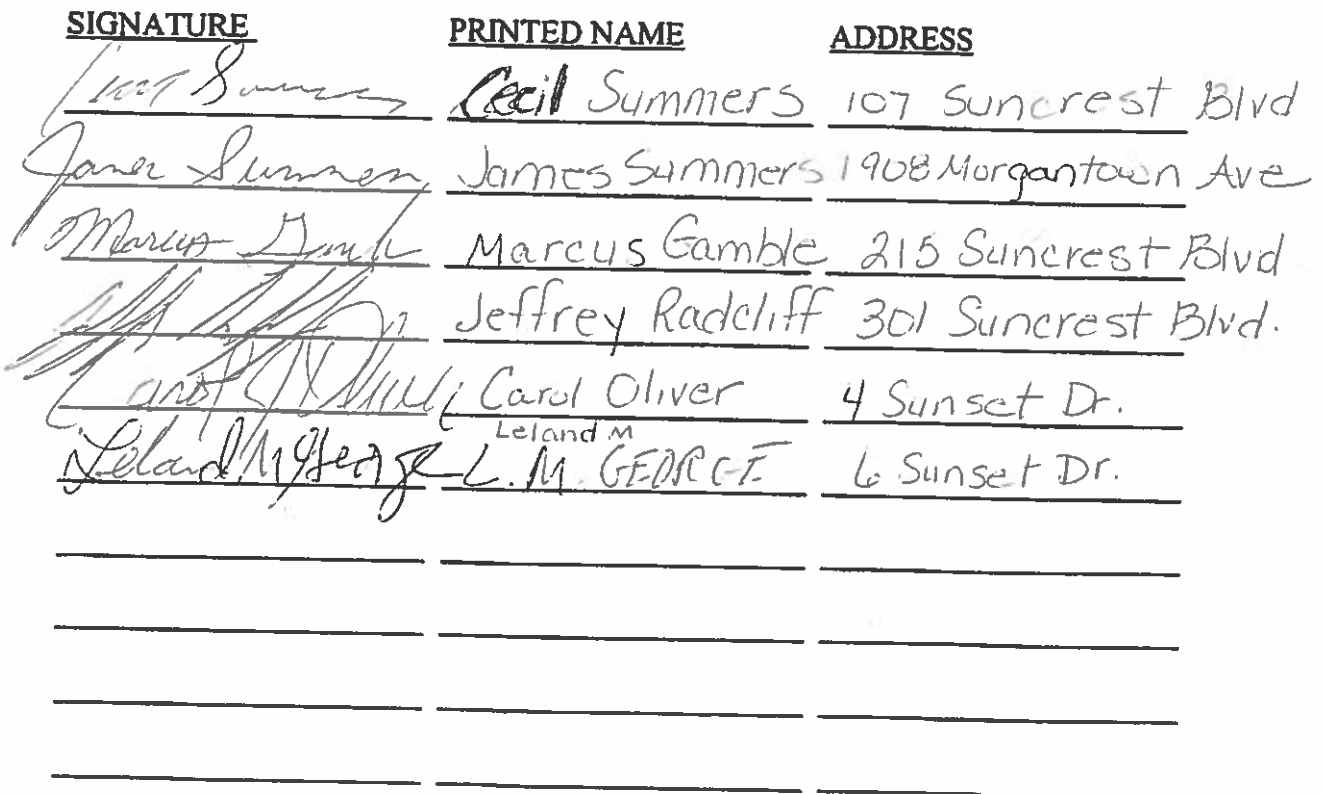 SIGNATURE PRINTED NAME ADDRESS
Summers Cecil Summers 107 Suncrest Blvd
James Summers James Summers 1908 Morgantown Ave
Marcus Gamble Marcus Gamble 215 Suncrest Blvd
Jeffrey Radcliff 301 Suncrest Blvd.
Carol Oliver 4 Sunset Dr.
Leland M
Leland M George L. M. GEORGE 6 Sunset Dr.